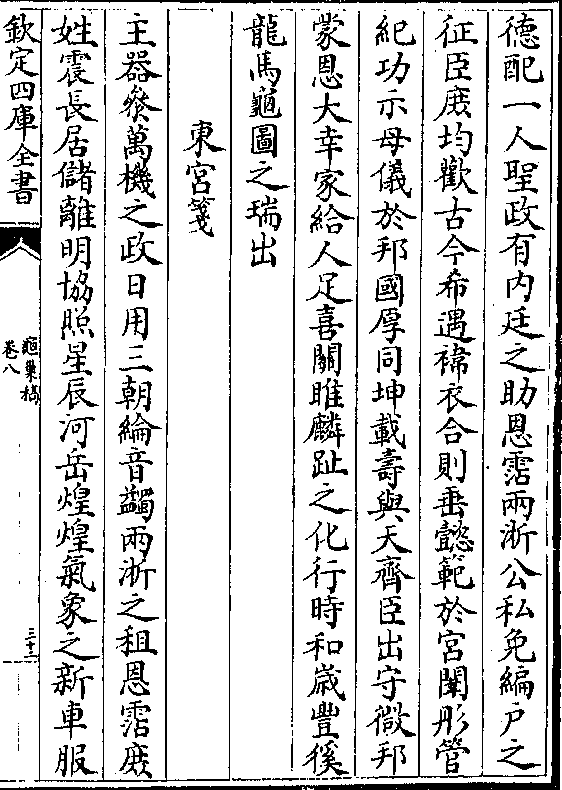 德配一人聖政有内廷之助恩霑兩浙公私免編户之
征臣庶均歡古今希遇褘衣合則垂懿範於宮闈彤管
紀功示母儀於邦國厚同坤載壽與天齊臣出守微邦
蒙恩大幸家給人足喜關睢麟趾之化行時和歳豐徯
龍馬龜圖之瑞出
東宮箋
主器叅萬機之政日用三朝綸音蠲兩浙之租恩霑庶
姓震長居儲離明協照星辰河岳煌煌氣象之新車服
欽定四庫全書
龜巢稿
卷八
三十三